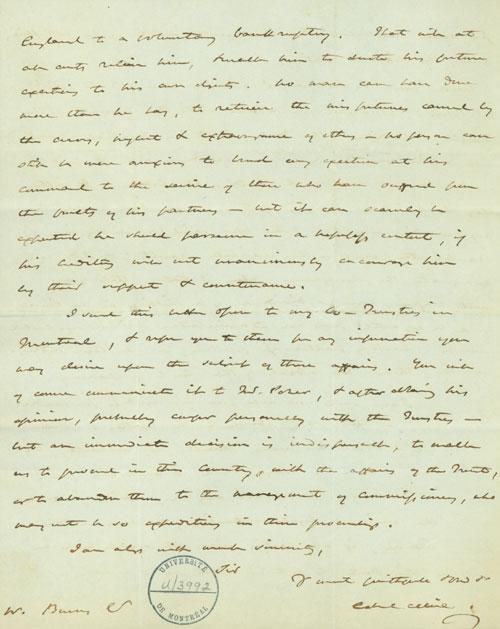 England to a voluntary bankruptcy. That will at
all events relieve him, & enable him to devote his future
exertions to his own objects. No man can have done
more than he has, to retrieve the misfortunes caused by
the errors, neglect & extravagance of others – no person can
still be more anxious to lend any exertion at his
command to the service of those who have suffered from
the faults of his partners – but it can scarcely be
expected he should persevere in a hopeless contest, if
his creditors will not unanimously encourage him
by their support & countenance.
I send this letter open to my Co-Trustees in
Montreal, & refer you to them for any information you
may desire upon the subject of those affairs. You will
of course communicate it to Mr. & after obtaining his
opinion, probably confer personally with the Trustees –
but an immediate decision is indispensable, to enable
us to proceed in this Country, with the affairs of the Trust,
or to abandon them to the management of Commissioners, who
may not be so expeditious in their proceedings.
I am also with much sincerity,
Sir
Your
W. Burns
UNIVERSITÉ
U/3992
DE MONTRÉAL